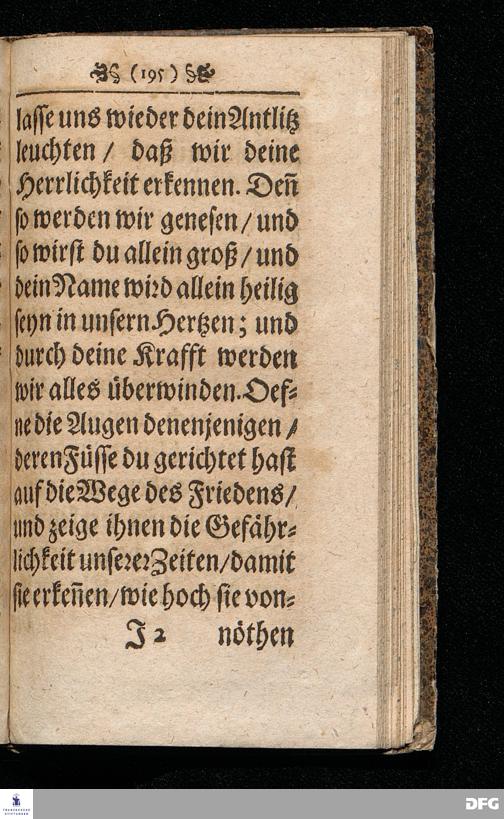 (195)
lasse uns wieder dein Antlitz
leuchten / daß wir deine
Herrlichkeit erkennen. Deñ
so werden wir genesen / und
so wirst du allein groß / und
dein Name wird allein heilig
seyn in unsern Hertzen; und
durch deine Krafft werden
wir alles überwinden. Oef-
ne die Augen denenjenigen /
deren Füsse du gerichtet hast
auf die Wege des Friedens /
und zeige ihnen die Gefähr-
lichkeit unserer Zeiten / damit
sie erkeñen / wie hoch sie von-
J 2 nöthen
FRANCKESCHE
STIFTUNGEN
DFG